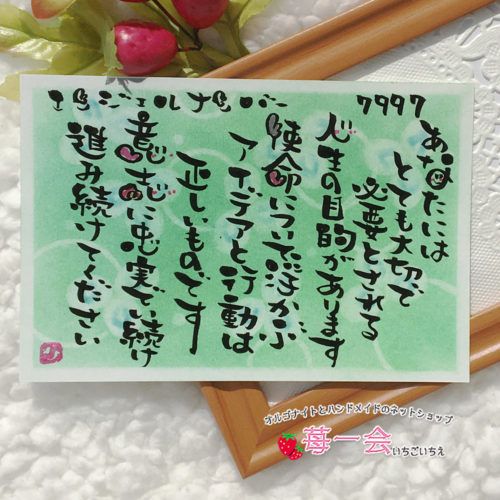 エンジェルナンバー
7997
あなたには
とても大切で
必要とされる
人生の目的があります
使命について浮かぶ
アイデアと行動は
正しいものです
意志に忠実でい続け
進み続けてください
オルゴナイトとハンドメイドのネットショップ
苺一会いちごいちえ